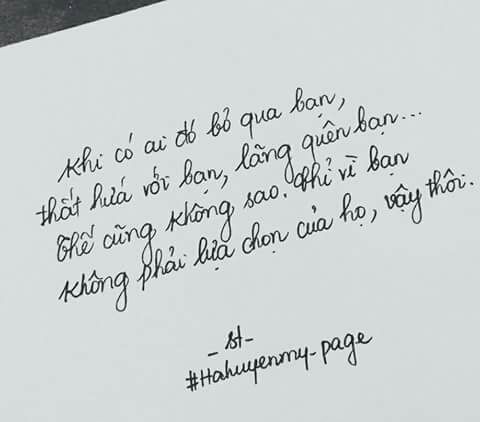 Khi có ai đó bỏ qua bạn,
thất hứa với bạn, lãng quên bạn...
Thế cũng không sao. Chỉ vì bạn
không phải lựa chọn của họ, vậy thôi.
_ st _
#Hahuyenmy_page